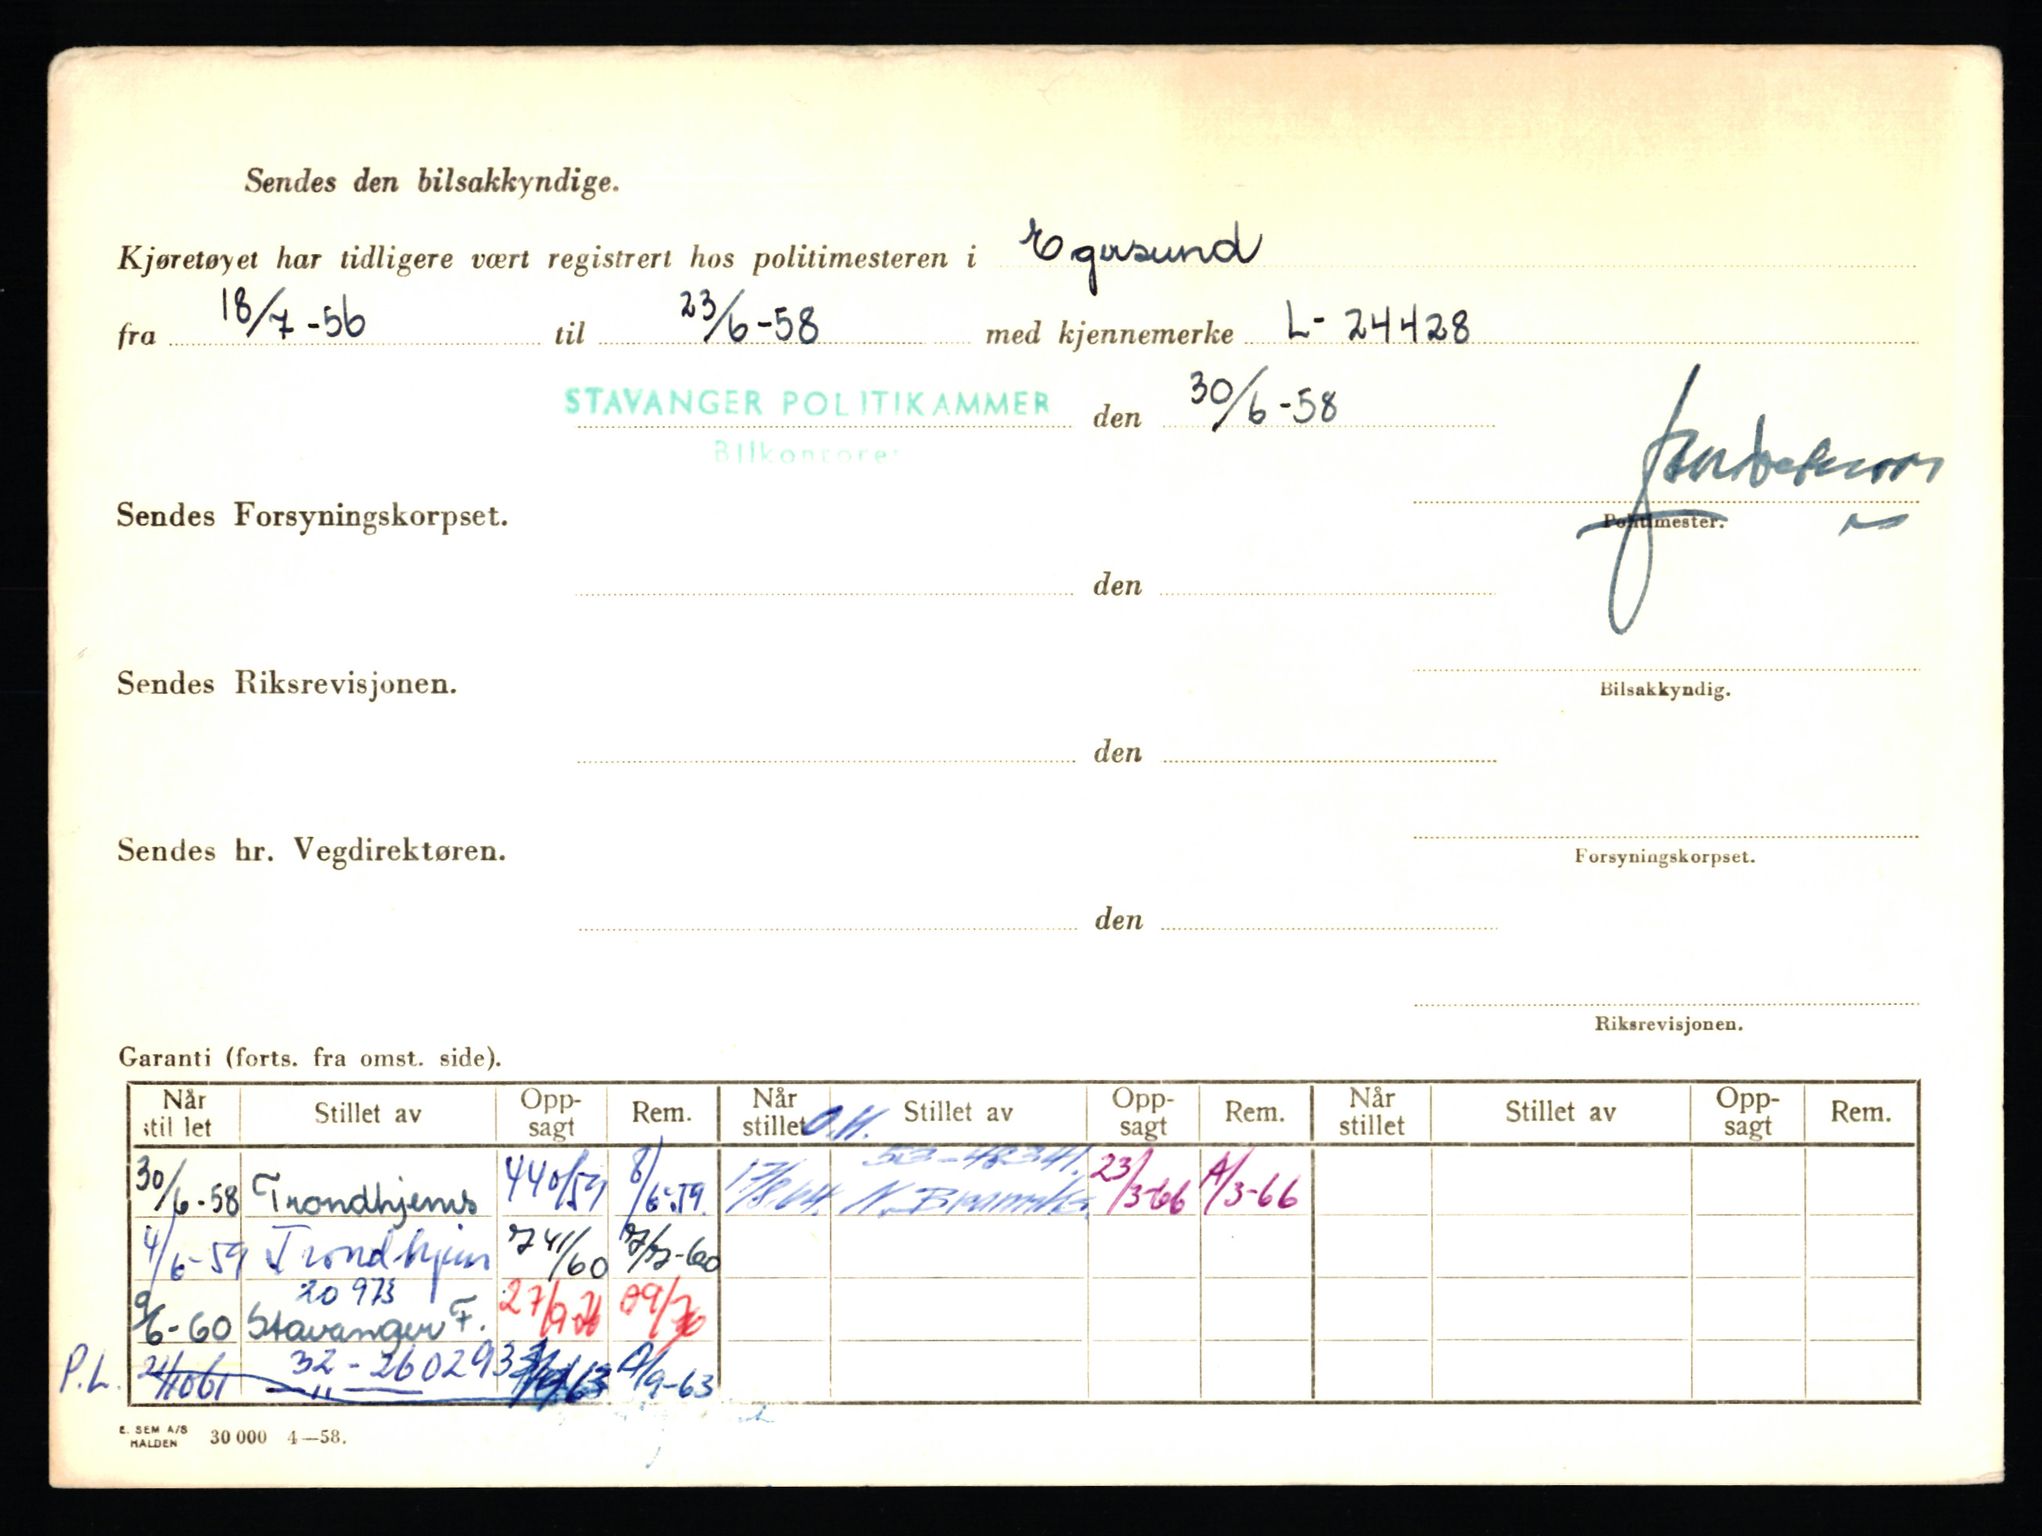 Sendes den bilsakkyndige.
Kjøretøyet har tidligere vært registrert hos politimesteren i Egersund
fra 18/7-56 til 23/6-58 med kjennemerke L- 24428
STAVANGER POLITIKAMMER den 30/6-58
Bilkontoret
Sendes Forsyningskorpset.
Politimester.
den
Sendes Riksrevisjonen.
Bilsakkyndig.
den
Sendes hr. Vegdirektøren.
Forsyningskorpset.
den
Riksrevisjonen.
Garanti (forts. fra omst. side).
Når stillet Stillet av Oppsagt Rem. Når stillet Stillet av Oppsagt Rem. Når stillet Stillet av Oppsagt Rem.
30/6-58 Trondhjems 440/59 8/6-59. 17/8.64. 23/3-66 A/3-66
4/6-59 Trondhjem 741/60
20973
9/6-60 Stavanger F.
P.L. 32-260293 A/9-63
E. SEM A/S
HALDEN 30 000 4—58.